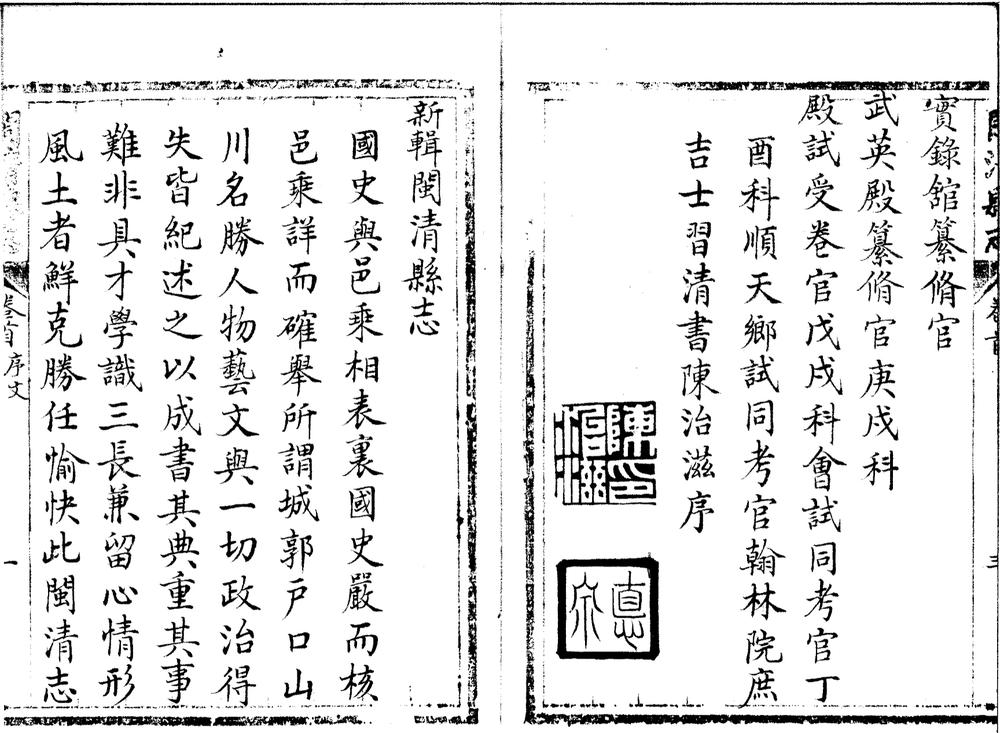 實錄館纂脩官
武英殿纂脩官庚戌科
殿試受卷官戊戌科會試同考官丁
酉科順天鄉試同考官翰林院庶
吉士習清書陳治滋序
新輯閩清縣志
國史與邑乘相表裏國史嚴而核
邑乘詳而確舉所謂城郭戶口山
川名勝人物藝文與一切政治得
失皆紀述之以成書其典重其事
難非具才學識三長兼留心情形
風土者鮮克勝任愉快此閩清志
卷首
序文
一